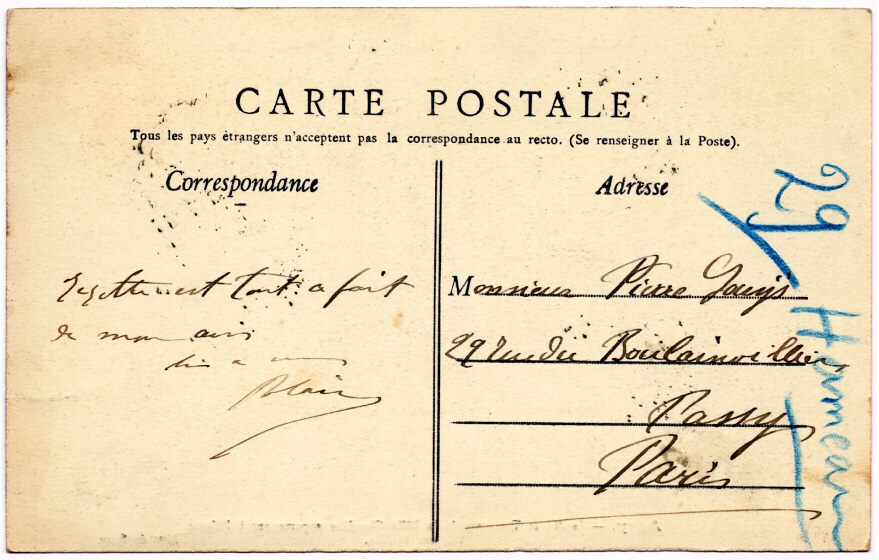 CARTE POSTALE
Tous les pays étrangers n'acceptent pas la correspondance au recto. (Se renseigner à la Poste).
Correspondance
est tout a fait
de mon avis
Adresse
Monsieur Pierre Louÿs
29 rue du Boulainvilliers
Passy
Paris
29 Hameau